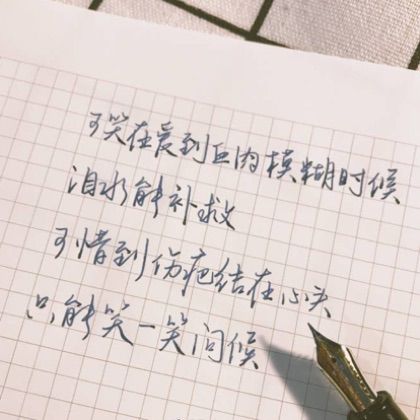 可笑在爱到血肉模糊时候
泪水能补救
可惜到伤疤结在心头
只能笑一笑问候